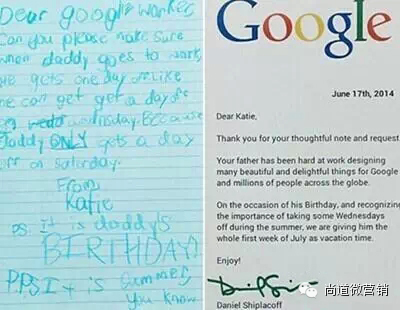 Dear google worker,
Can you please make sure
when daddy goes to work,
he gets one day off. Like
he can get a day off
on wednesday. Because
daddy ONLY gets a day
off on saturday.
From,
Katie
P.S. It is daddy's
BIRTHDAY!
P.P.S. It is summer,
you know
Google
June 17th, 2014
Dear Katie,
Thank you for your thoughtful note and request
Your father has been hard at work designing
many beautiful and delightful things for Google
and millions of people across the globe.
On the occasion of his Birthday, and recognizing
the importance of taking some Wednesdays
off during the summer, we are giving him the
whole first week of July as vacation time.
Enjoy!
Daniel Shiplacoff
尚道微营销